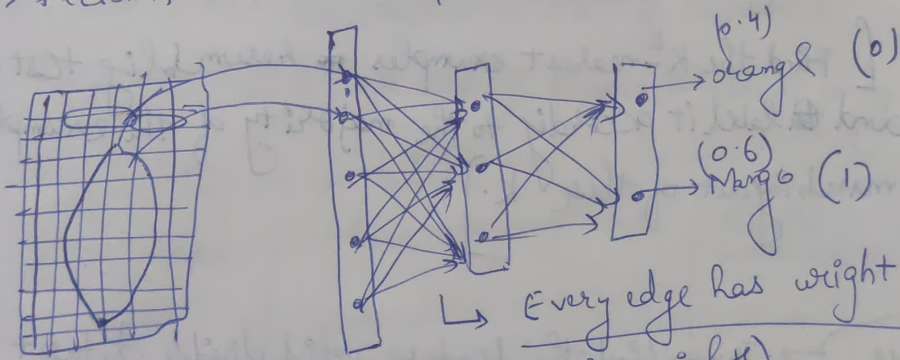 (0.4)
orange (0)
(0.6)
Mango (1)
Every edge has wright